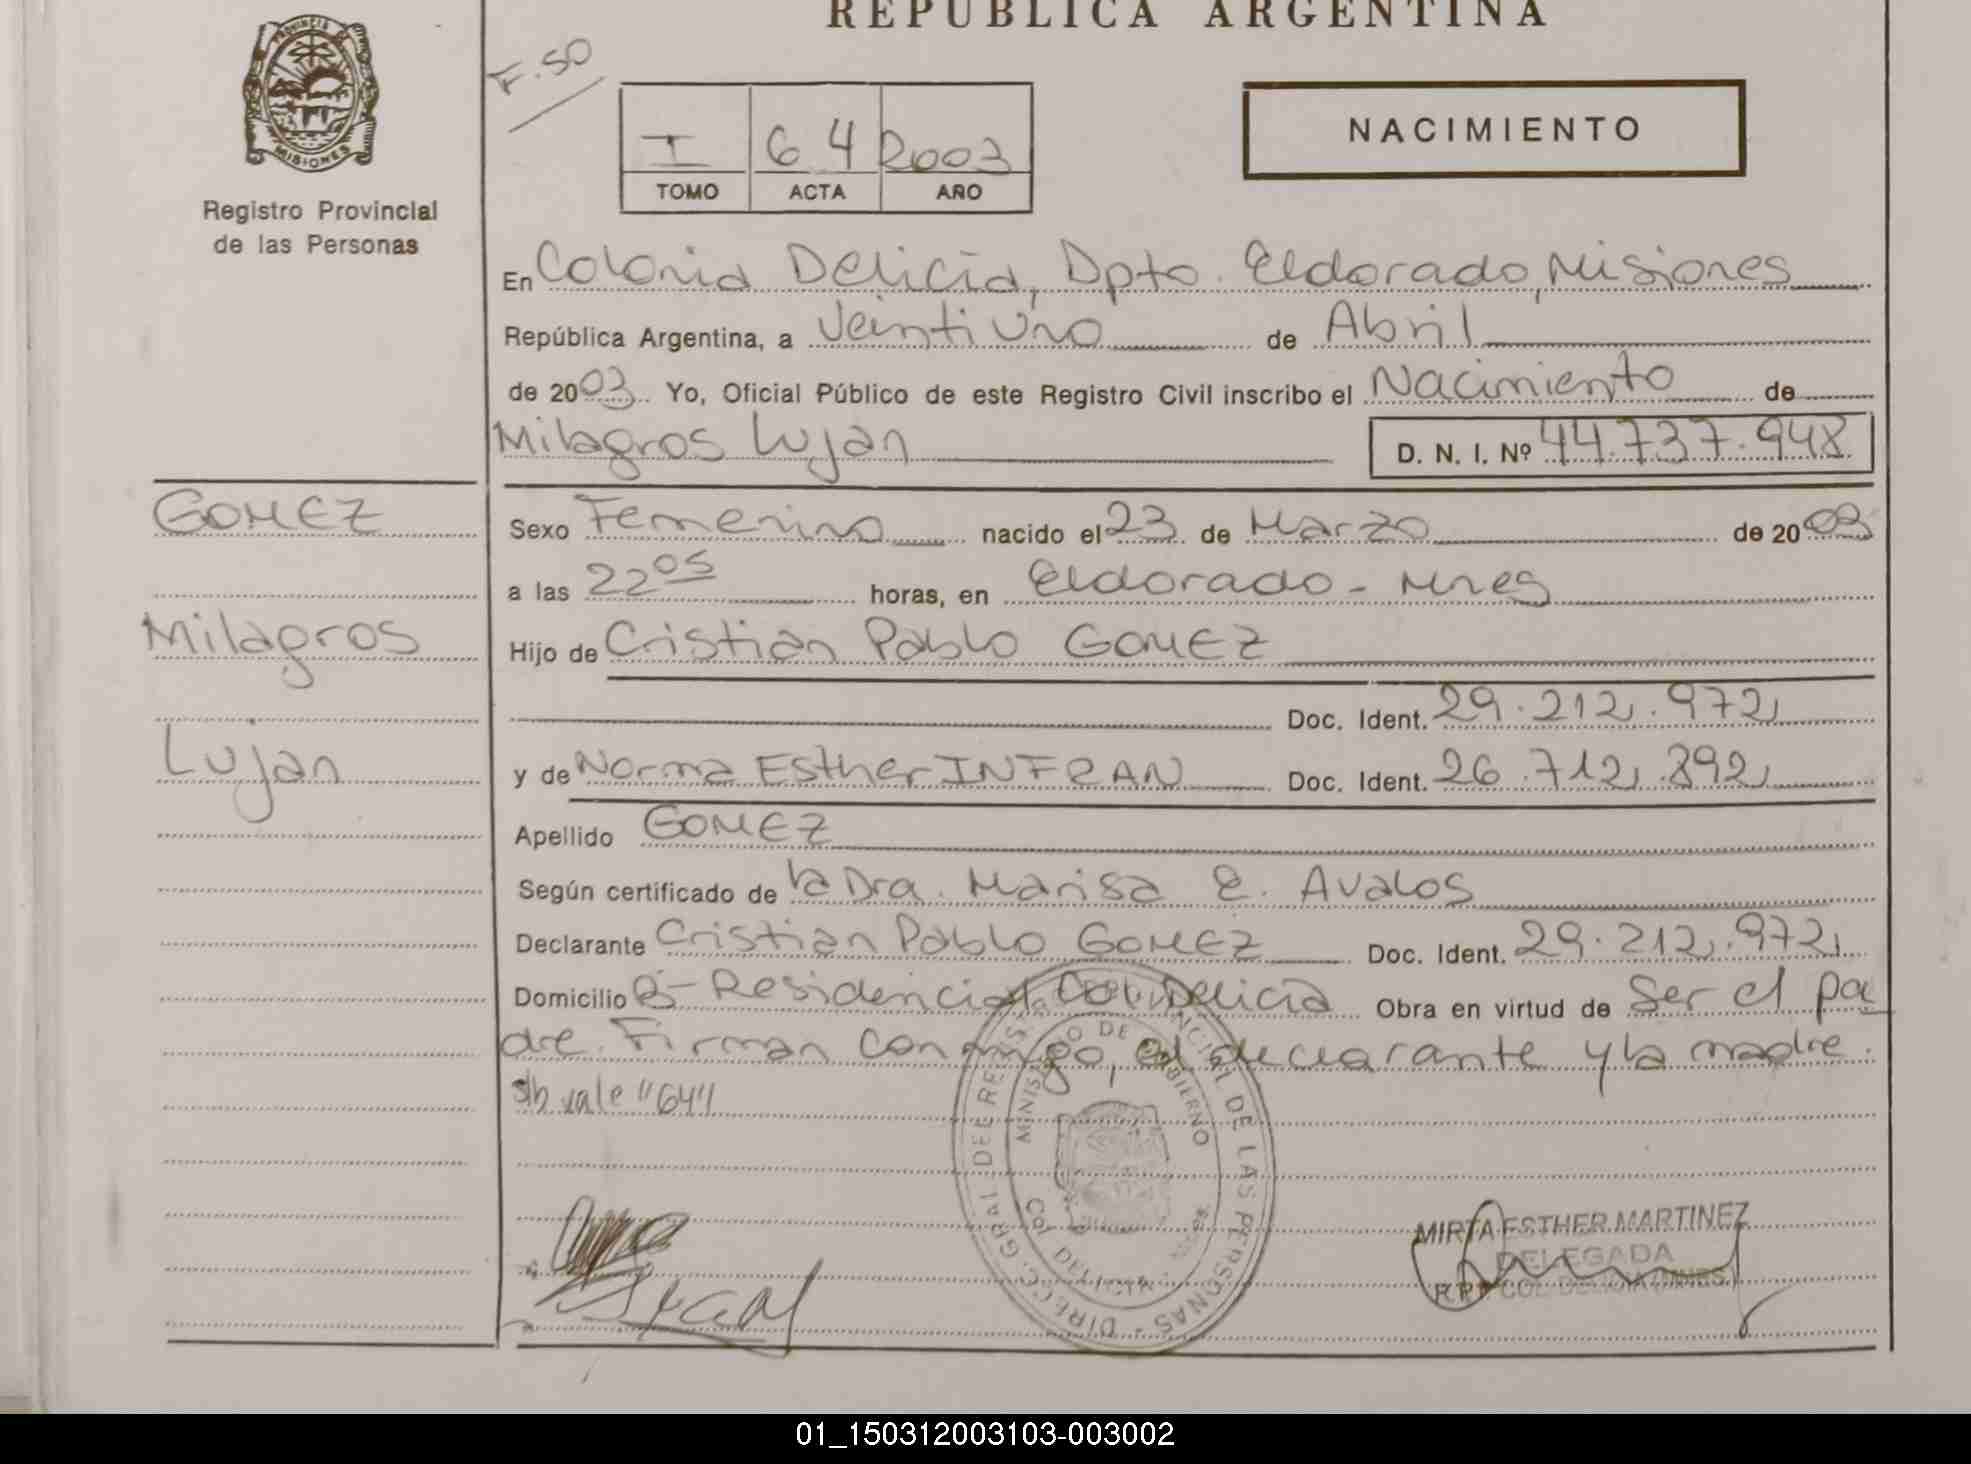 REPUBLICA ARGENTINA
PROVINCIA DE
MISIONES
Registro Provincial
de las Personas
F. 50
I 64 2003
TOMO ACTA AÑO
NACIMIENTO
En Colonia Delicia, Dpto. Eldorado, Misiones
República Argentina, a Veintiuno de Abril
de 2003. Yo, Oficial Público de este Registro Civil inscribo el Nacimiento de
Milagros Lujan D. N. I. Nº 44.737.948
GOMEZ
Milagros
Lujan
Sexo Femenino nacido el 23 de Marzo de 2003
a las 22 05 horas, en Eldorado - Mnes
Hijo de Cristian Pablo GOMEZ
Doc. Ident. 29.212.972
y de Norma Esther INFRAN Doc. Ident. 26.712.892
Apellido GOMEZ
Según certificado de la Dra. Marisa E. Avalos
Declarante Cristian Pablo GOMEZ Doc. Ident. 29.212.972
Domicilio Bº Residencial Col. Delicia Obra en virtud de Ser el pa
dre. Firman conmigo, el declarante y la madre.
s/b vale "64"
DIREC. GRAL DEL REGISTRO PROVINCIAL DE LAS PERSONAS
MINISTERIO DE GOBIERNO
COL DELICIA
MIRTA ESTHER MARTINEZ
DELEGADA
R.P.P COL DELICIA (MNES.)
01_150312003103-003002